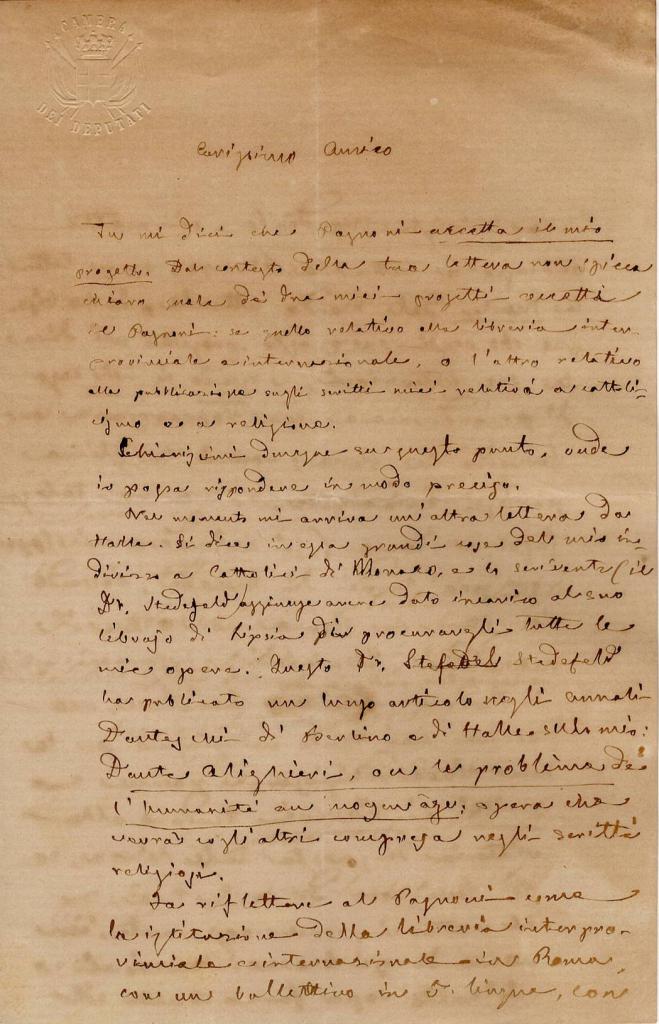 CAMERA
DEI DEPUTATI
Carissimo Amico
Tu mi dici che Pagnoni accetta il mio
progetto. Dal contesto della tua lettera non spicca
chiaro quale dei due miei progetti accetti
il Pagnoni: se quello relativo alla libreria inter-
provinciale e internazionale, o l'altro relativo
alla pubblicazione sugli scritti miei relativi a cattoli-
cismo e a religione.
Schiariscimi dunque su questo punto, onde
io possa rispondere in modo preciso.
Nel momento mi arriva un'altra lettera da
Halle. Si dice in essa grandi cose del mio in-
dirizzo a Cattolici di Monaco, e lo scrivente (il
Dr. Stedefeld) aggiunge avere dato incarico al suo
librajo di Lipsia di procurargli tutte le
mie opere. Questo Dr. Stedefeld
ha pubblicato un lungo articolo negli annali
Danteschi di Berlino e di Halle sul mio:
Dante Alighieri, ou le problème de
l'humanité au moyen âge; opera che
verrà cogli altri compresa negli scritti
religiosi.
Fa riflettere al Pagnoni come
la istituzione della libreria interpro-
vinciale e internazionale in Roma,
con un bullettino in 5. lingue, con